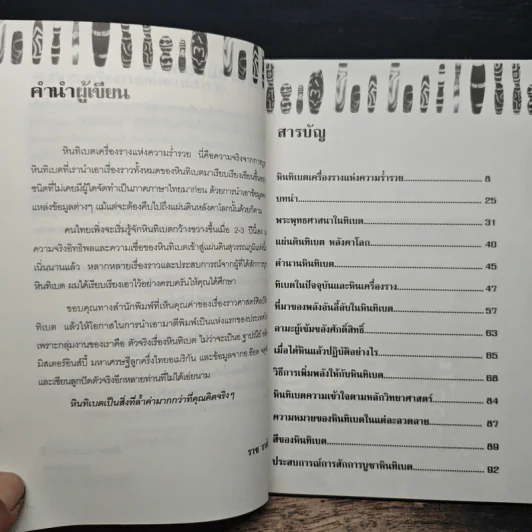 คำนำผู้เขียน
หินทิเบตเครื่องรางแห่งความร่ำรวย นี่คือความจริงจากการบูชา
หินทิเบตที่เรานำเอาเรื่องราวทั้งหมดของหินทิเบตมาเรียบเรียงเขียนขึ้น
ชนิดที่ไม่เคยมีผู้ใดจัดทำเป็นภาคภาษาไทยมาก่อน ด้วยการนำเอาข้อมูล
แหล่งข้อมูลต่างๆ แม้แต่จะต้องดิ้นไปถึงแผ่นดินหลังคาโลกนั้นด้วยก็ตาม
คนไทยเพิ่งจะเริ่มรู้จักหินทิเบตกว้างขวางขึ้นเมื่อ 2-3 ปีนี้เอง
ความจริงอิทธิพลและความเชื่อของหินทิเบตเข้าสู่แผ่นดินสุวรรณภูมิ
เนิ่นนานแล้ว หลากหลายเรื่องราวและประสบการณ์จากผู้ที่ได้สักการบูชา
หินทิเบต ผมได้เรียบเรียงเอาไว้อย่างครบครันให้คุณได้ศึกษา
ขอบคุณทางสำนักพิมพ์ที่เห็นคุณค่าของเรื่องราวศาสตร์ศิลป์
ทิเบต แล้วให้โอกาสในการนำเอามาตีพิมพ์เป็นแห่งแรกของประเทศ
เพราะกลุ่มงานของเราคือ ตัวจริงเรื่องหินทิเบต ไม่ว่าจะเป็น
มิสเตอร์อินส์บี้ มหาเศรษฐีลูกครึ่งไทยอเมริกัน และข้อมูลจาก
และเซียนลูกปัดตัวจริงอีกหลายท่านที่ไม่ได้เอ่ยนาม
หินทิเบตเป็นสิ่งที่ล้ำค่ามากกว่าที่คุณคิดจริงๆ
ราช
สารบัญ
หินทิเบตเครื่องรางแห่งความร่ำรวย 8
บทนำ 25
พระพุทธศาสนาในทิเบต 31
แผ่นดินทิเบต หลังคาโลก 40
ตำนานหินทิเบต 45
ทิเบตในปัจจุบันและหินเครื่องราง 47
ที่มาของพลังอันลี้ลับในหินทิเบต 57
ลามะผู้เข้มขลังศักดิ์สิทธิ์ 63
เมื่อได้หินแล้วปฏิบัติอย่างไร 65
วิธีการเพิ่มพลังให้กับหินทิเบต 68
หินทิเบตความเข้าใจตามหลักวิทยาศาสตร์ 84
ความหมายของหินทิเบตในแต่ละลวดลาย 87
สีของหินทิเบต 89
ประสบการณ์การสักการบูชาหินทิเบต 92